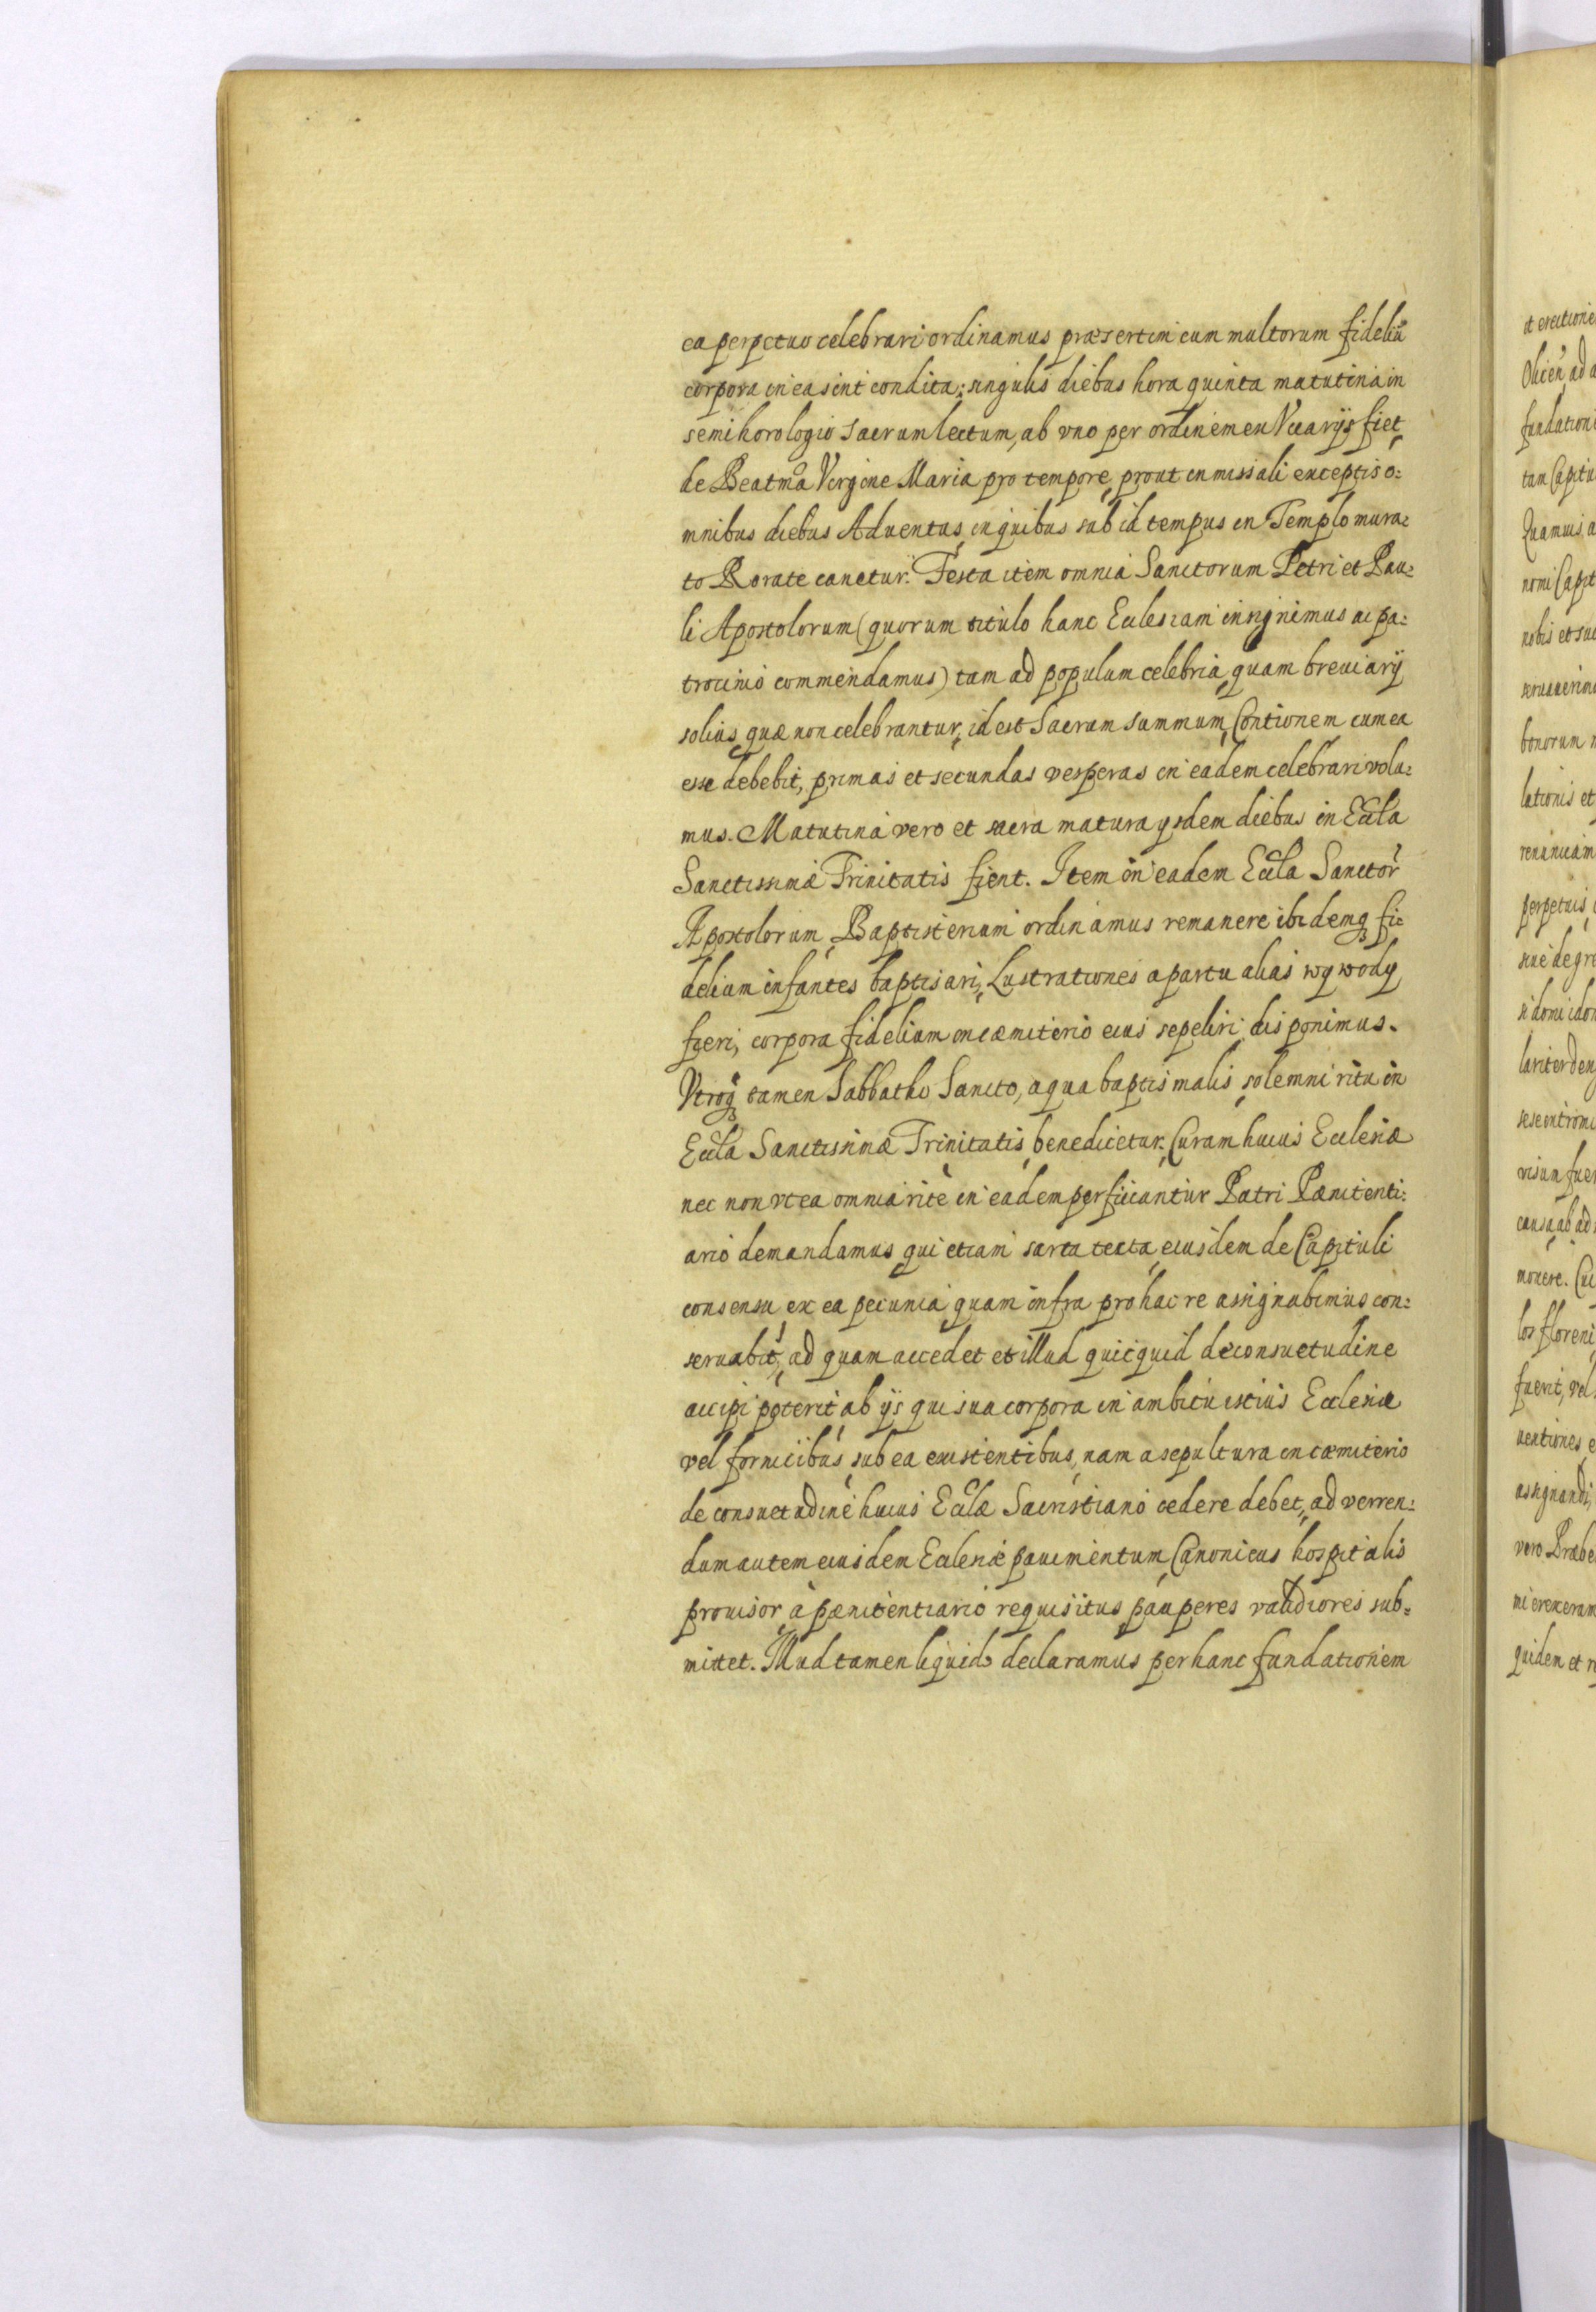 ea perpetuo celebrari ordinamus præsertim cum multorum fideliũ
corpora in ea sint condita: singulis diebus hora quinta matutina in
semihorologio sacrum lectum, ab vno per ordinem ex Vicarijs fiet
de Beatmã Virgine Maria pro tempore, prout in missali exceptis o:
mnibus diebus Aduentus, in quibus sub id tempus in Templo mura:
to Rorate canetur. Festa item omnia Sanctorum Petri et Pau:
li Apostolorum (quorum titulo hanc Ecclesiam insignimus ac pa:
trocinio commendamus) tam ad populum celebria, quam breuiarij
solius, quæ non celebrantur, id est Sacrum summum, Contionem cum ea
esse debebit, primas et secundas vesperas in eadem celebrari volu:
mus. Matutina vero et sacra matura ijsdem diebus in Eccła
Sanctissimæ Trinitatis fient. Item in eadem Eccła Sanctor
Apostolorum, Baptisterium ordinamus remanere ibidemq fi:
delium infantes baptisari, Lustrationes a partu alias wywody
fieri, corpora fidelium in cæmiterio eius sepeliri disponimus.
Vtroq tamen Sabbatho Sancto, aqua baptismalis, solemni ritu in
Eccła Sanctissimæ Trinitatis, benedicetur. Curam huius Ecclesiæ
nec non vt ea omnia ritè in eadem perficiantur Patri Pænitenti:
ario demandamus, qui etiam sarta tecta, eiusdem de Capituli
consensu ex ea pecunia, quam infra pro hac re assignabimus con:
seruabit, ad quam accedet et illud quicquid de consuetudine
accipi poterit ab ijs qui sua corpora in ambitu istius Ecclesiæ
vel fornicibus, sub ea existentibus, nam a sepultura in cæmiterio
de consuetudine huius Eccłæ Sacristiano cedere debet, ad verren:
dum autem eiusdem Ecclesiæ pauimentum, Canonicus hospitalis
prouisor, à pænitentiario requisitus, pauperes validiores sub:
mittet. Illud tamen liquido declaramus per hanc fundationem